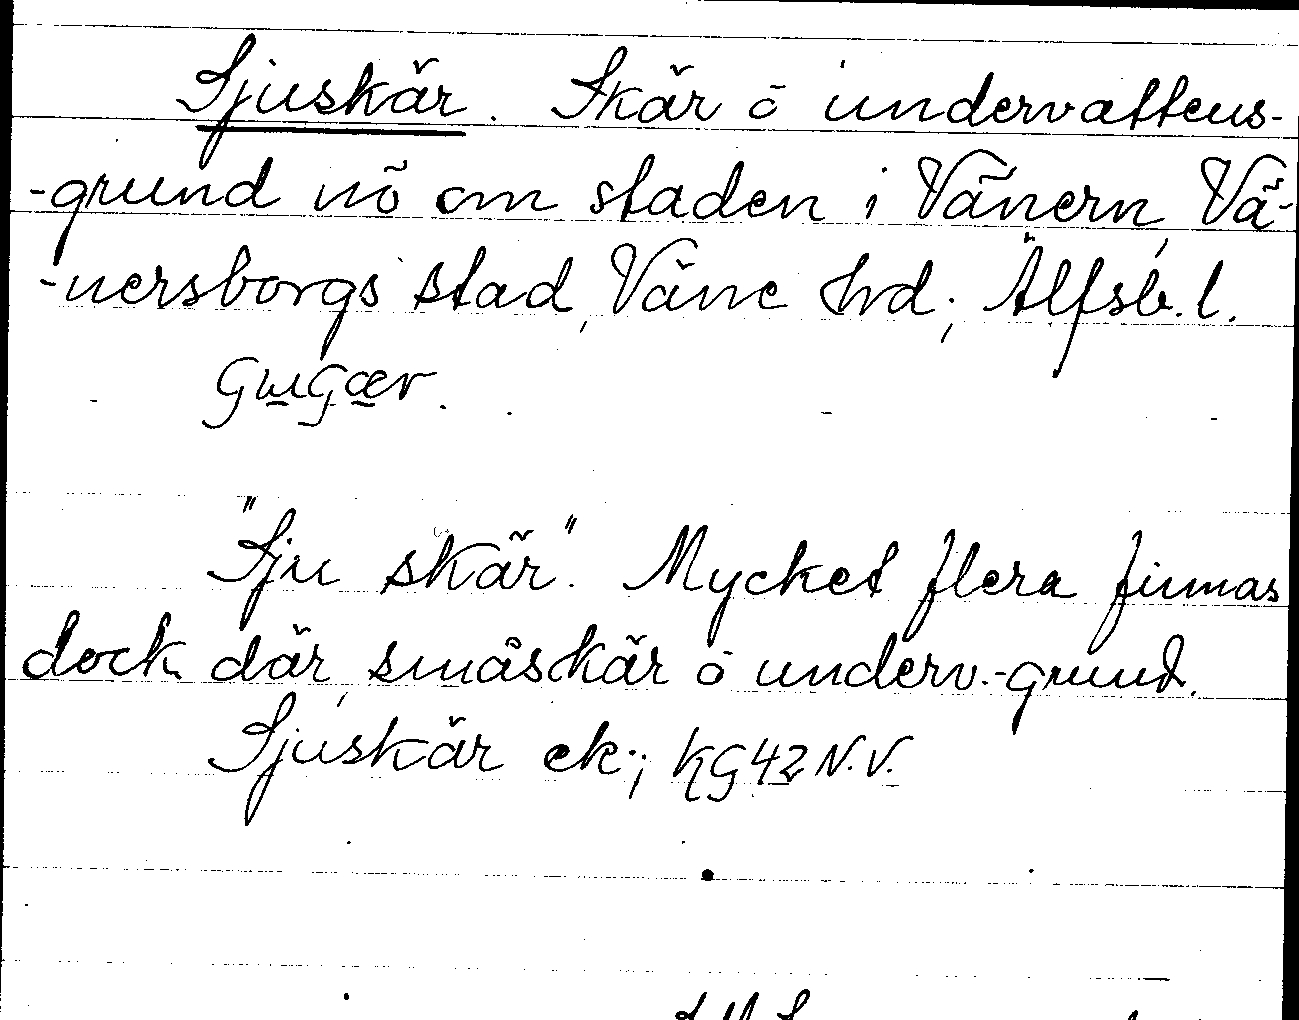 Sjuskär. Skär o undervattens-
-grund nö om staden i Vänern, Vä-
-nersborgs stad, Väne hrd; Älfsb. l.
"Sju skär". Mycket flera finnas
dock där, småskär o underv.-grund.
Sjuskär ek.; KG42 N.V.